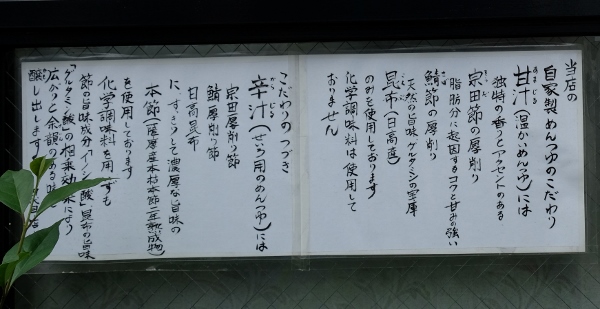 当店の
自家製めんつゆのこだわり
甘汁(温かいめんつゆ)には
あまじる
独特の香りとアクセントのある
宗田節の厚削り
そうだ
脂肪分に起因するコクと甘みの強い
鯖節の厚削り
天然の旨味グルタミンの宝庫
昆布(日高産)
こんぶ
のみを使用しております
化学調味料は使用して
おりません
こだわりのつづき
辛汁(せいろ用のめんつゆ)には
からじる
宗田厚削り節
鯖厚削り節
日高昆布
に、すっきりして濃厚な旨味の
本節(薩摩産本枯本節二年熟成物)
を使用しております
化学調味料を用いずも
節の旨味成分「イノシン酸」昆布の旨味
「グルタミン酸」の相乗効果により
広がりと余韻のある味
醸し出します